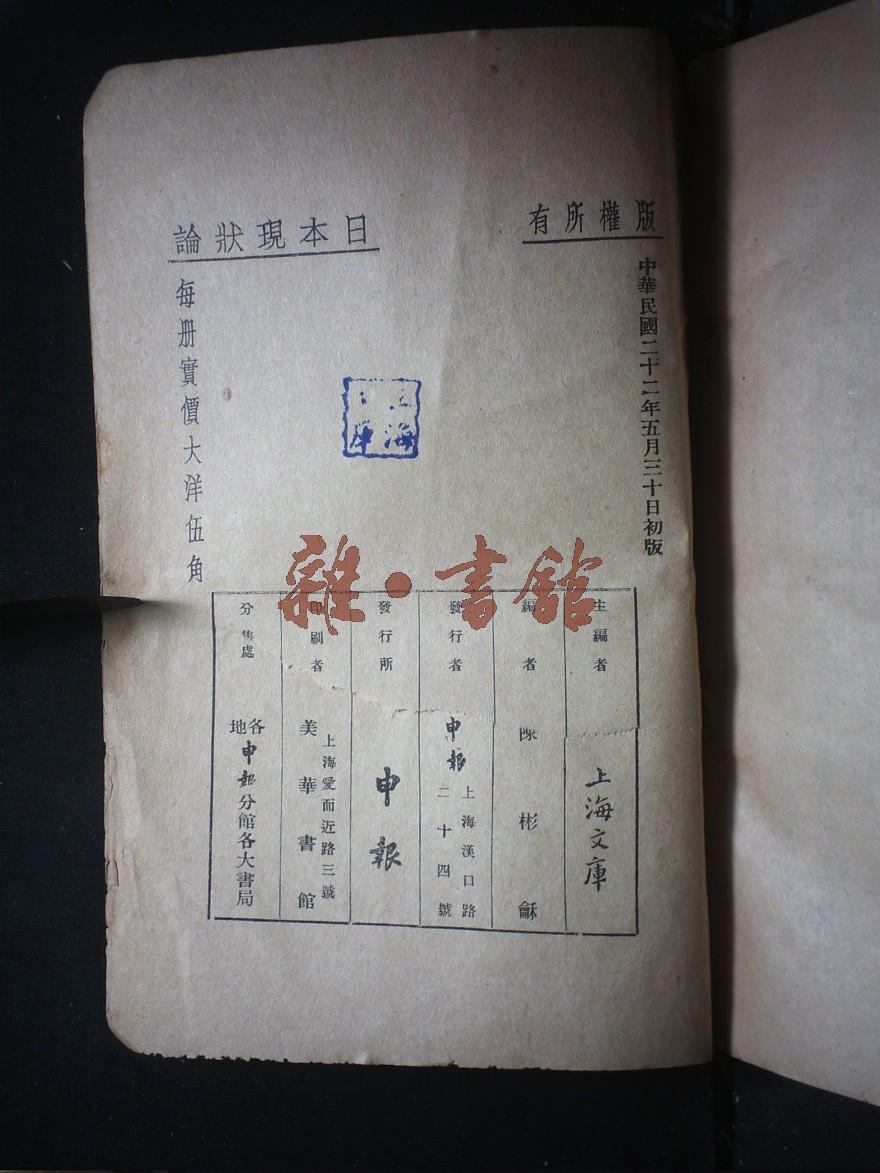 版權所有
中華民國二十二年五月三十日初版
日本現狀論
每册實價大洋伍角
海
庫
雜·書館
主編者
上海文庫
編者
陳彬龢
發行者
申報
上海漢口路
二十四號
發行所
申報
印刷者
上海愛而近路三號
美華書館
分售處
各地申報分館各大書局